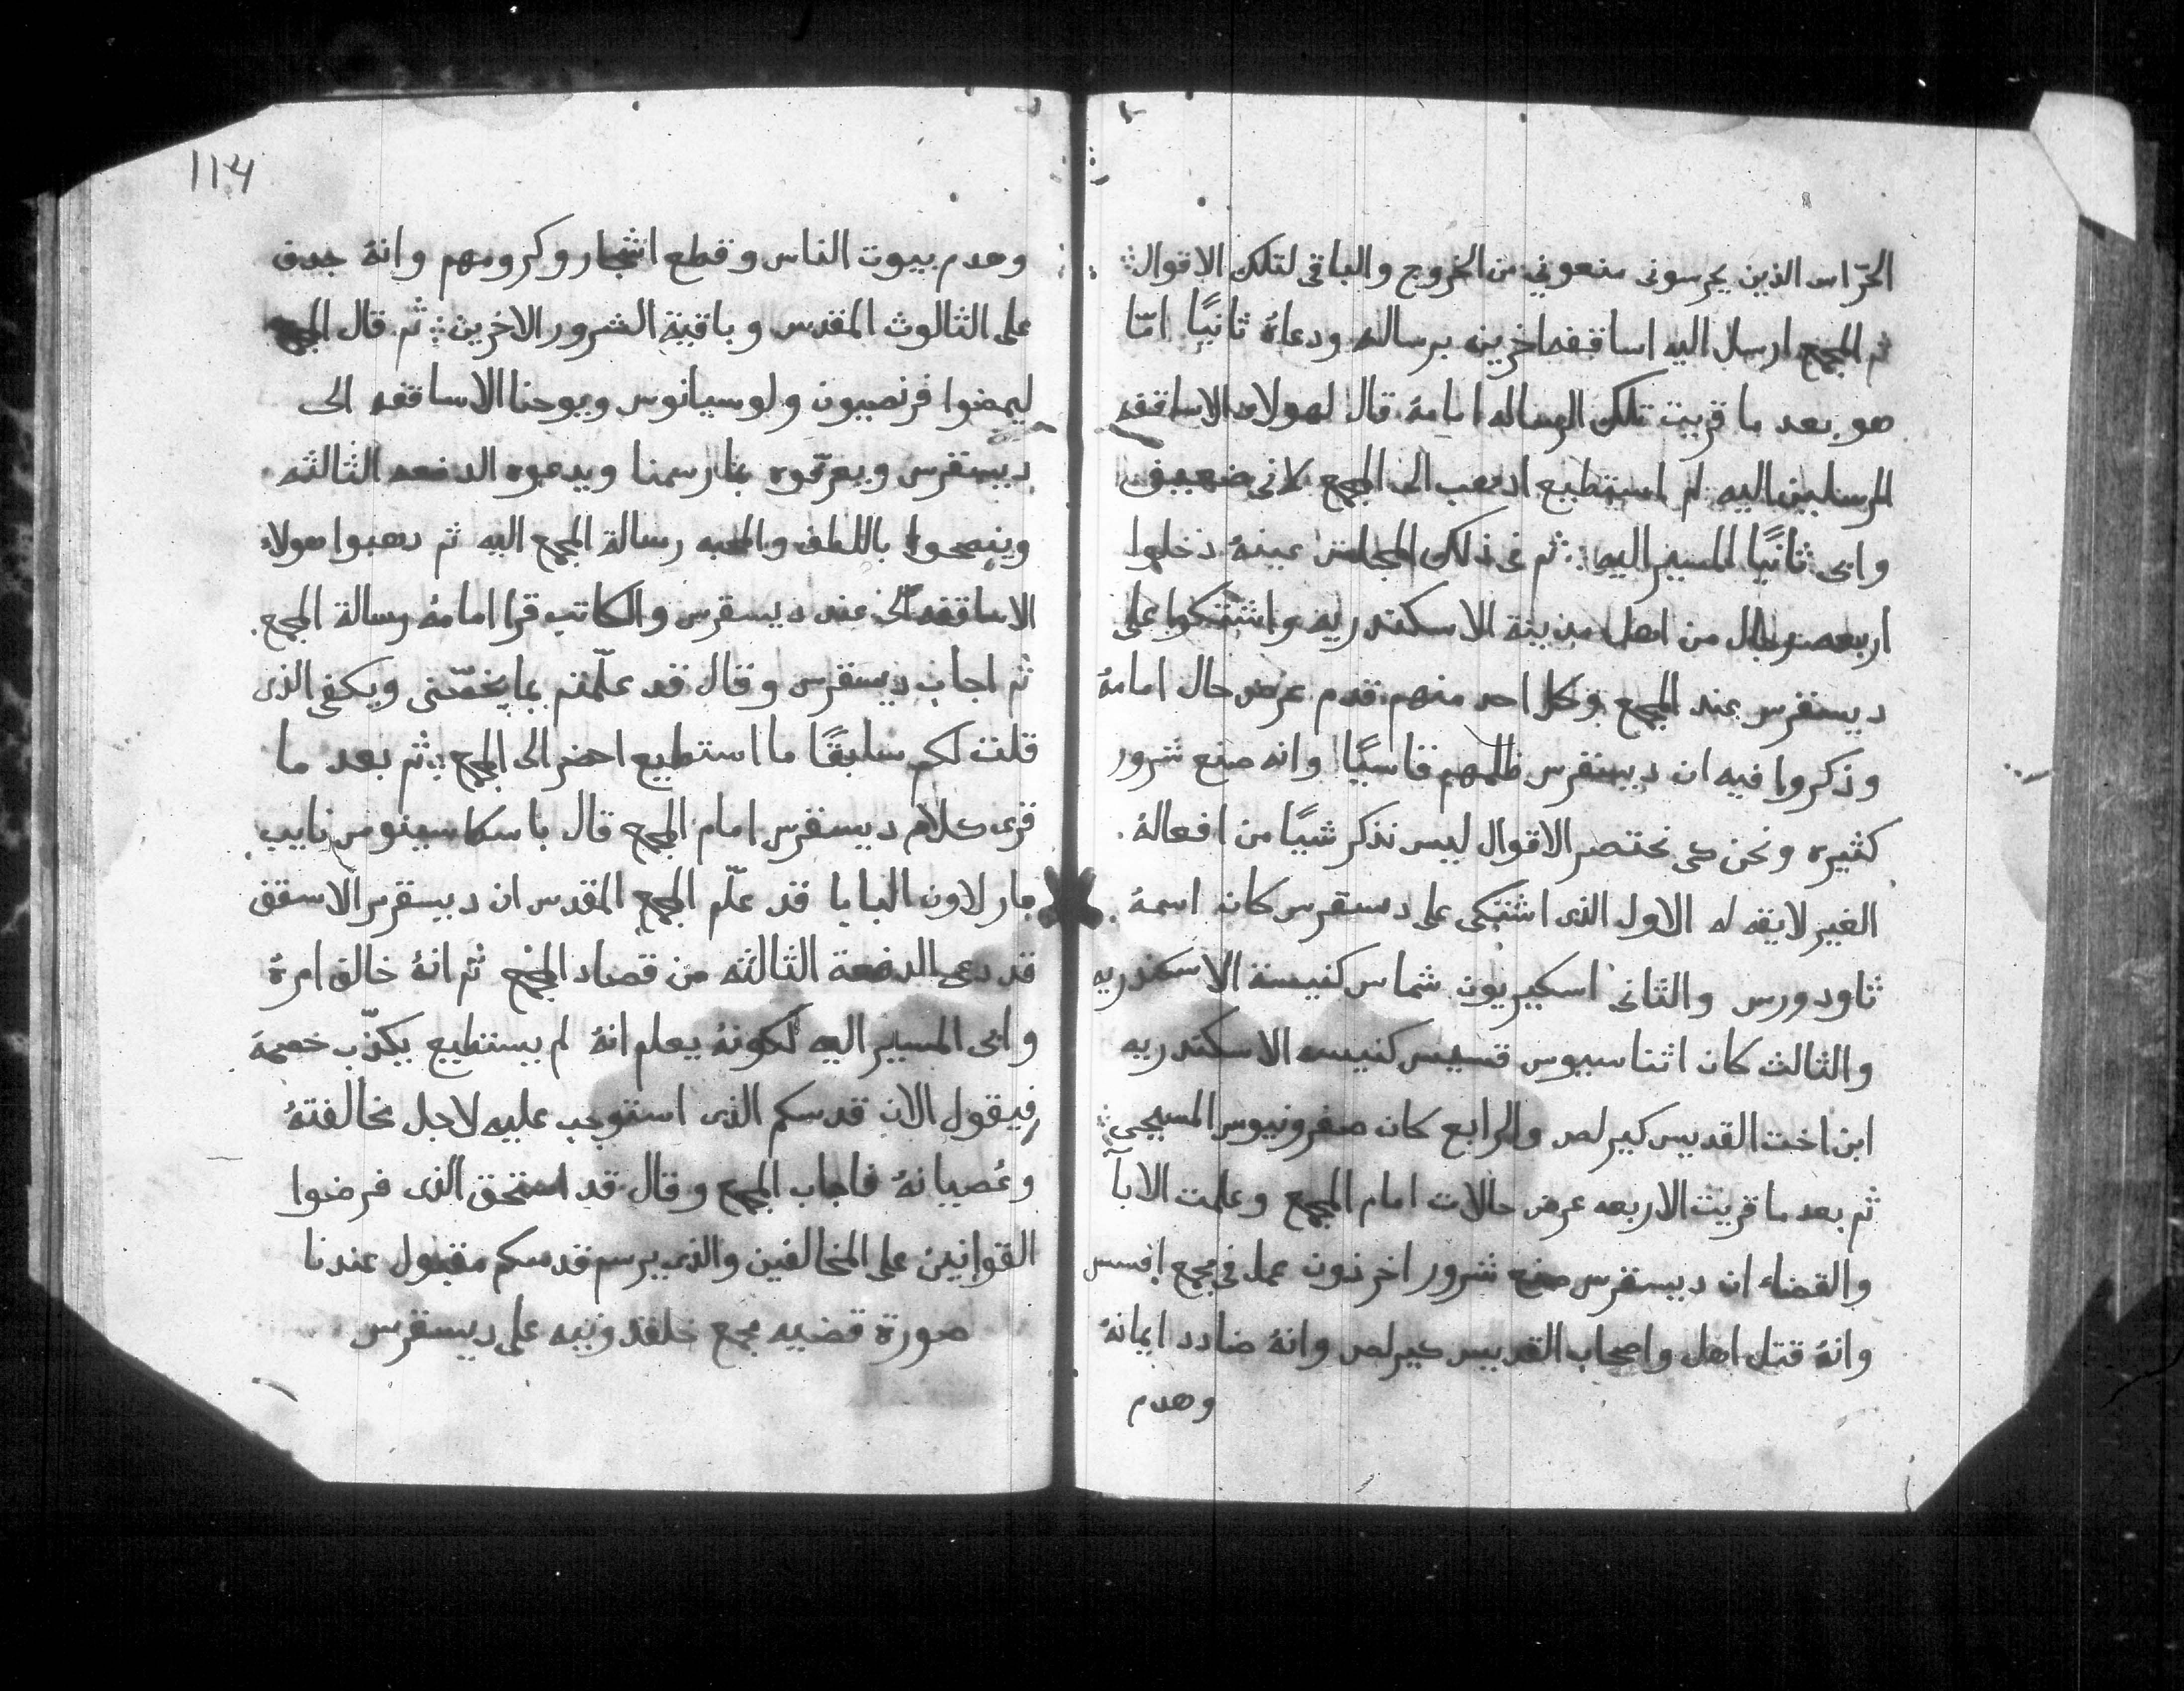 الحرّاس الذين يحرسونى منعونى من الخروج والباقى لتلك الاقوال
ثم المجمع ارسل اليه اساقفه اخرين برساله ودعاهٔ ثانيًا امّا
هو بعد ما قريت تلك الرساله امامهٔ قال لهولاء الاساقفه
المرسلين اليه لم استطيع ادهب الى المجمع لانى ضعيف
وابى ثانيًا المسير اليه ثم فى ذلك المجلس عينهٔ دخلوا
اربعه رجال من اهل مدينة الاسكندريه واشتكوا على
ديسقرس عند المجمع وكل احد منهم قدم عرض حال امامهٔ
وذكروا فيه ان ديسقرس ظلمهم قاسيًا وانه صنع شرور
كثيره ونحن كى نختصر الاقوال ليس نذكر شيًا من افعالهٔ
الغير لايقه له الاول الذى اشتكى على دسقرس كان اسمهٔ
ثاودورس والثانى اسكيريون شماس كنيسة الاسكندريه
والثالث كان اثناسيوس قسيس كنيسه الاسكندريه
ابن اخت القديس كيرلص والرابع كان صفرونيوس المسيحى
ثم بعد ما قريت الاربعه عرض حالات امام المجمع وعلمت الابآ
والقضاء ان ديسقرس صنع شرور اخر دون عمل فى مجمع افسس
وانهٔ قتل اهل واصحاب القديس كيرلص وانهٔ ضادد ايمانهٔ
وهدم
114
وهدم بيوت الناس وقطع اشجار وكرومهم وانهٔ جدف
على الثالوث المقدس وباقية الشرور الاخرين ثم قال المجمع
ليمضوا فرنصيون ولوسيانوس ويوحنا الاساقفه الى
ديسقرس ويعرّفوه بما رسمنا ويدعوه الدفعه الثالثه
وينصحوا باللطف والمحبه رسالة المجمع اليه ثم دهبوا هولاء
الاساقفه الى عند ديسقرس والكاتب قرا امامهٔ رسالة المجمع
ثم اجاب ديسقرس وقال قد علّمتم بما يخصّنى ويكفى الذى
قلت لكم سابقًا ما استطيع احضر الى المجمع ثم بعد ما
قرى كلام ديسقرس امام المجمع قال باسكاسينوس نايب
مار لاون البابا قد علّم المجمع المقدس ان ديسقرس الاسقف
قد دعى الدفعة الثالثه من قصاد المجمع ثم انهٔ خالف امرهٔ
وابى المسير اليه لكونهٔ يعلم انهٔ لم يستطيع يكذّب خصمهٔ
فيقول الان قدسكم الذى استوجب عليه لاجل مخالفتهٔ
وعُصيانهٔ فاجاب المجمع وقال قد استحق الذى فرضوا
القوانين على المخالفين والذى يرسم قدسكم مقبول عندنا
صورة قضيه مجمع خلقدونيه على ديسقرس